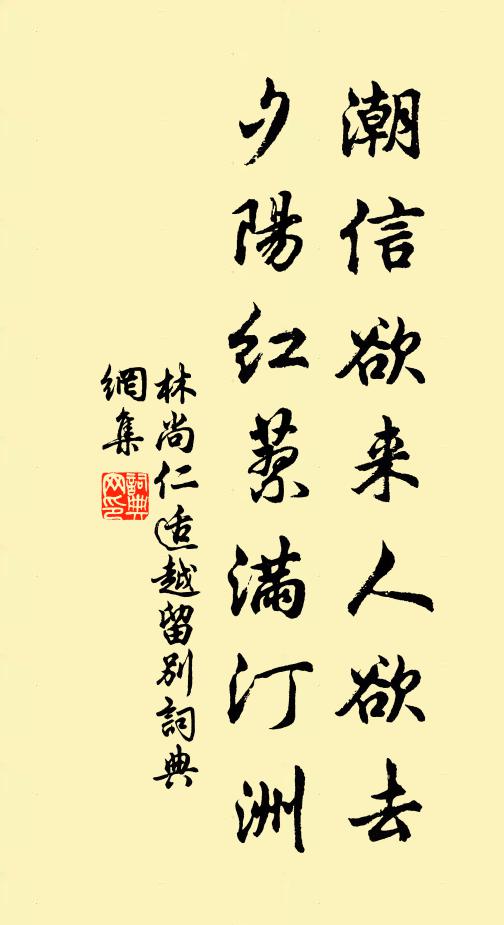 潮信欲来人欲去
夕陽红蓼滿汀洲
林尚仁适越留别詞典
網集
詞典
网印